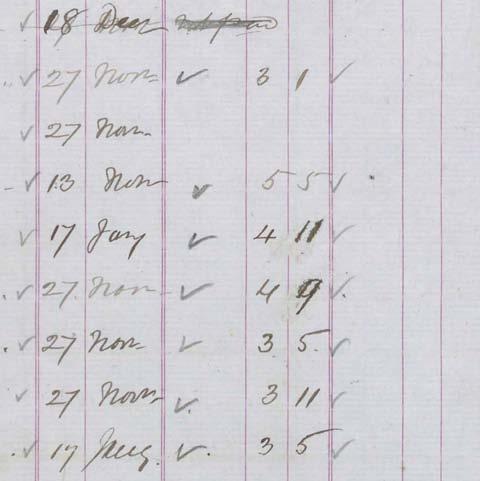 ✓ 18 Decr
✓ 27 Novr ✓ 3 1 ✓
✓ 27 Novr
✓ 13 Novr ✓ 5 5 ✓
✓ 17 Jany ✓ 4 11 ✓
✓ 27 Novr ✓ 4 9 ✓
✓ 27 Novr ✓ 3 5 ✓
✓ 27 Novr ✓ 3 11 ✓
✓ 17 Jany ✓ 3 5 ✓